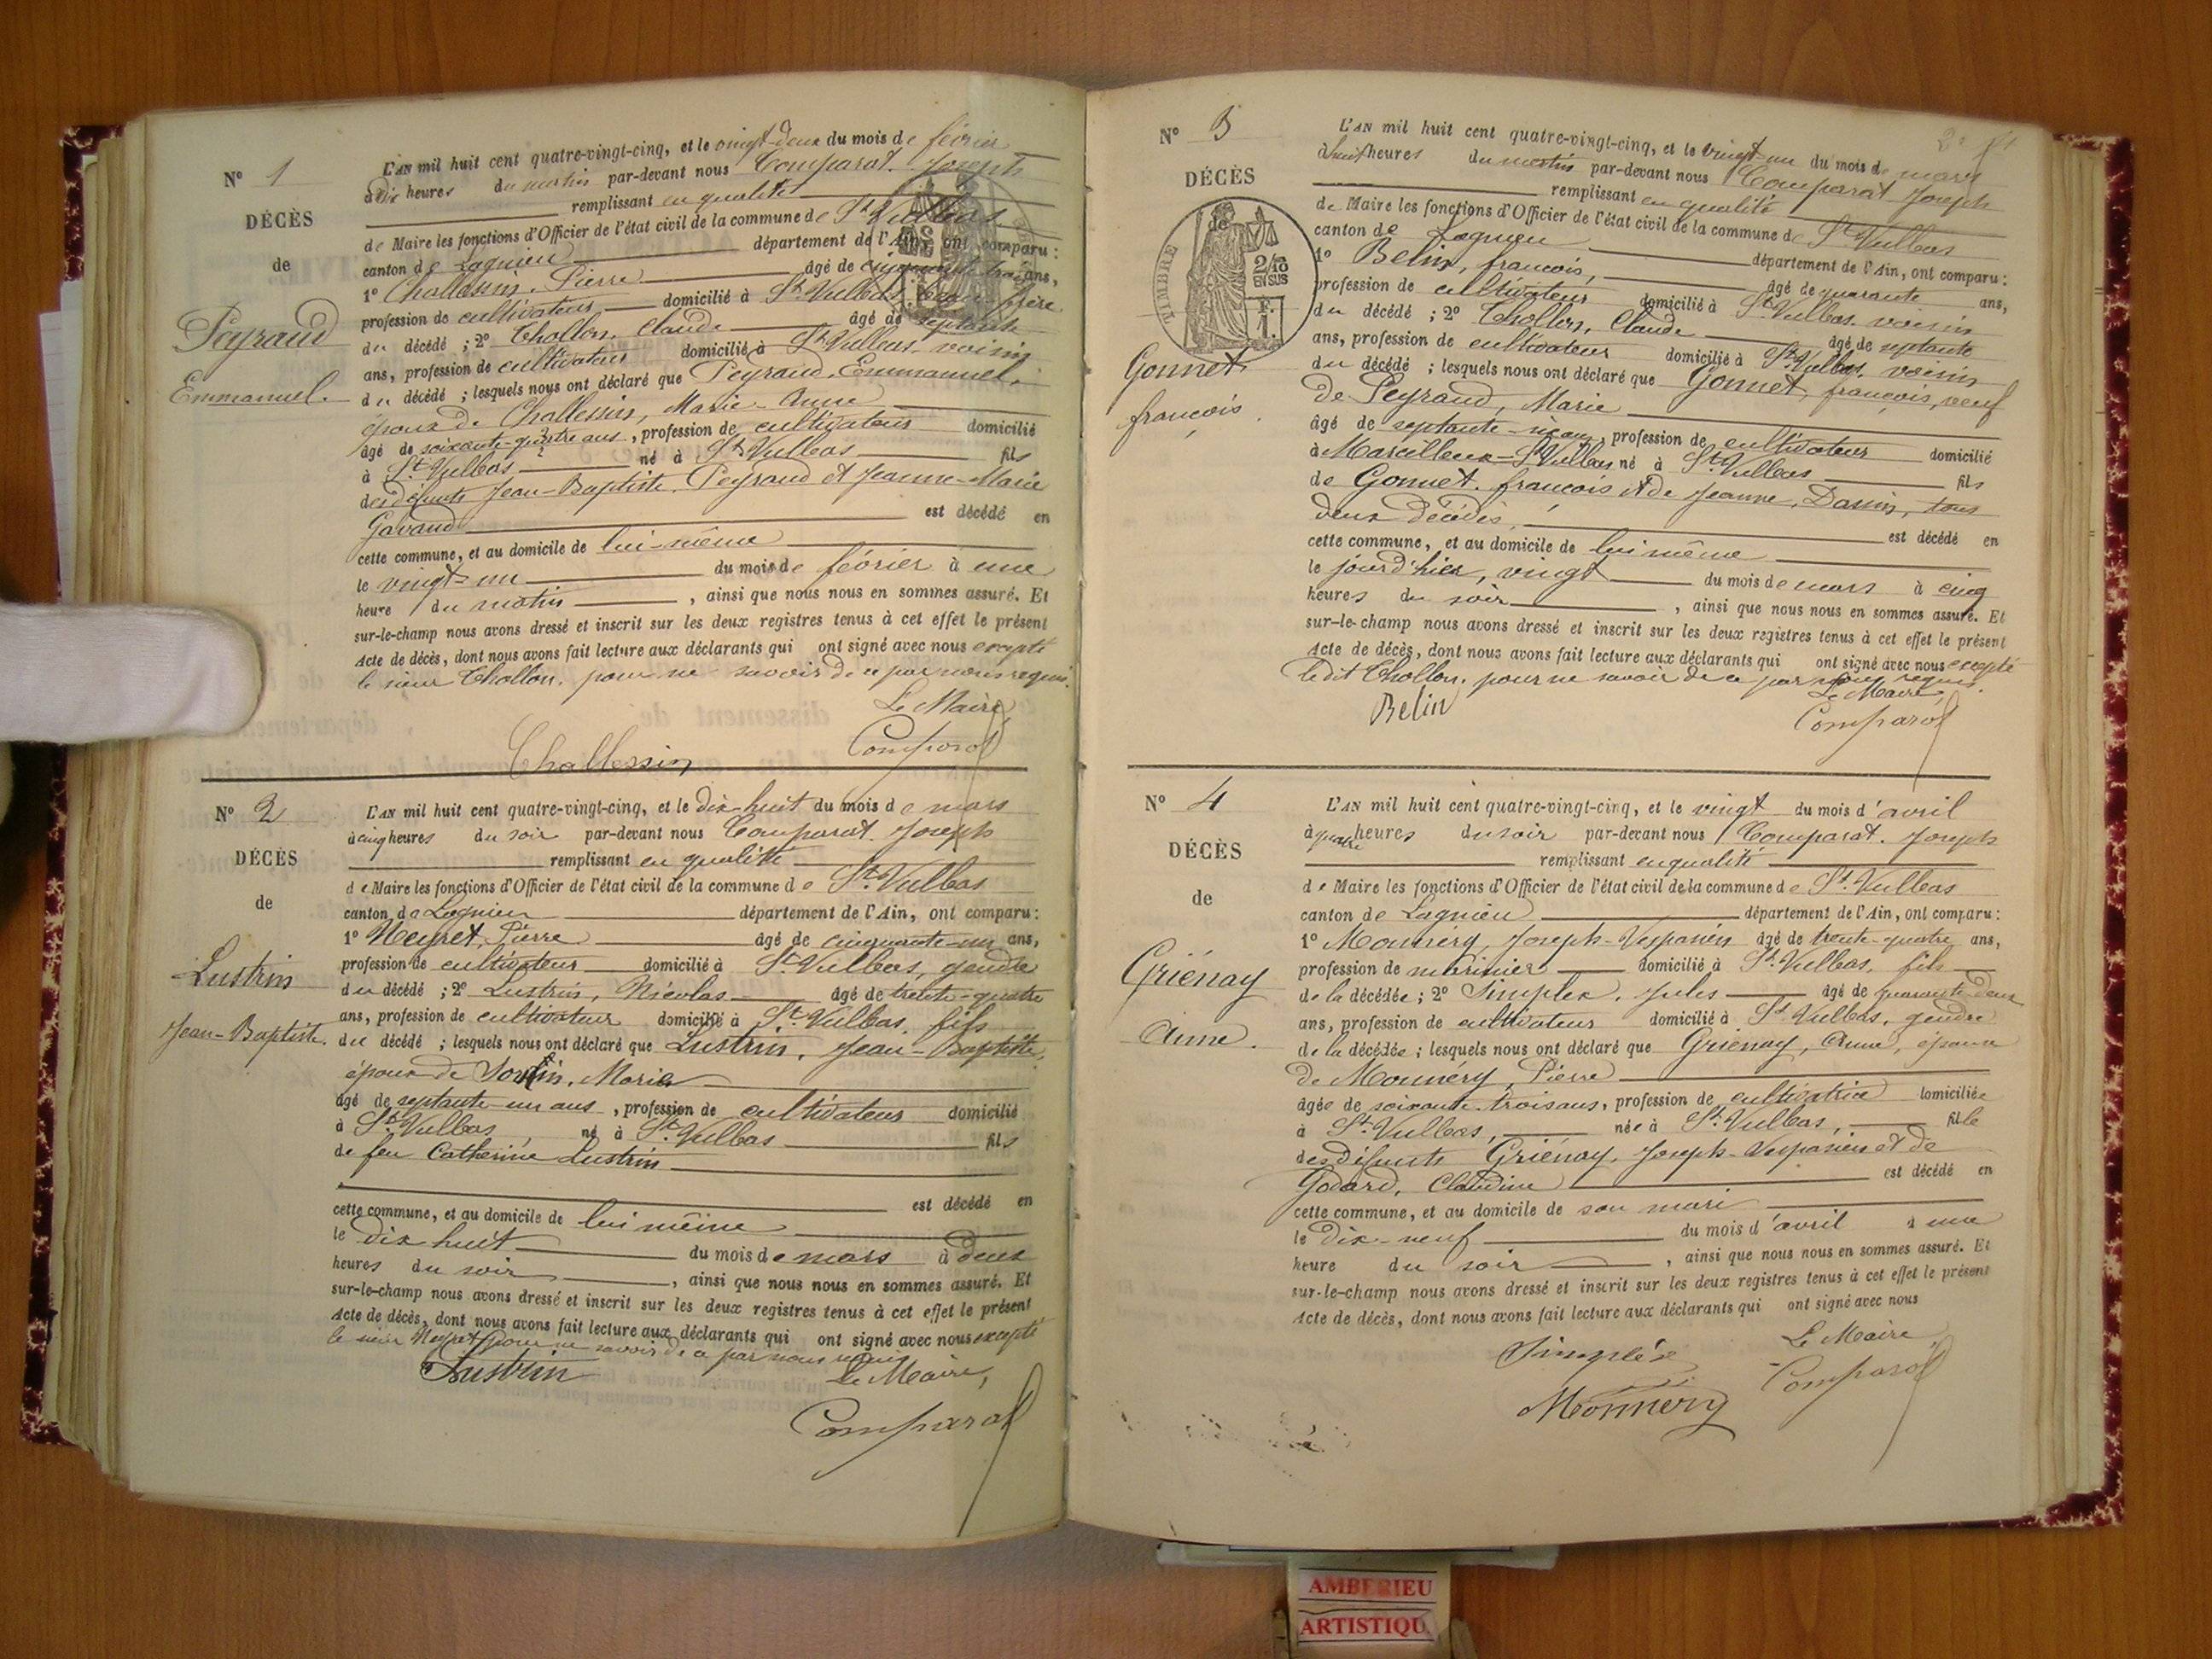 N° 1
DÉCÈS
de
Peyraud
Emmanuel.
L'AN mil huit cent quatre-vingt-cinq, et le vingt-deux du mois de février
à dix heures du matin par-devant nous Comparat. Joseph
remplissant en qualité
de Maire les fonctions d'Officier de l'état civil de la commune de St Vulbas
canton de Lagnieu département de l'Ain, ont comparu :
1° Challessin, Pierre âgé de cinquante-trois ans,
profession de cultivateur domicilié à St Vulbas, beau-frère
du décédé ; 2° Chollon, Claude âgé de septante
ans, profession de cultivateur domicilié à St Vulbas, voisin
du décédé ; lesquels nous ont déclaré que Peyraud, Emmanuel,
époux de Challessin, Marie-Anne
âgé de soixante-quatre ans, profession de cultivateur domicilié
à St Vulbas né à St Vulbas fils
des défunts Jean-Baptiste Peyraud et Jeanne-Marie
Gavaud est décédé en
cette commune, et au domicile de lui-même
le vingt-un du mois de février à une
heure du matin, ainsi que nous nous en sommes assuré. Et
sur-le-champ nous avons dressé et inscrit sur les deux registres tenus à cet effet le présent
Acte de décès, dont nous avons fait lecture aux déclarants qui ont signé avec nous excepté
le sieur Chollon, pour ne savoir de ce par nous requis.
Le Maire
Challessin Comparat
N° 2
DÉCÈS
de
Lustrin
Jean-Baptiste.
L'AN mil huit cent quatre-vingt-cinq, et le dix-huit du mois de mars
à cinq heures du soir par-devant nous Comparat. Joseph
remplissant en qualité
de Maire les fonctions d'Officier de l'état civil de la commune de St Vulbas
canton de Lagnieu département de l'Ain, ont comparu :
1° Neyret, Pierre âgé de cinquante-un ans,
profession de cultivateur domicilié à St Vulbas, gendre
du décédé ; 2° Lustrin, Nicolas âgé de trente-quatre
ans, profession de cultivateur domicilié à St Vulbas, fils
du décédé ; lesquels nous ont déclaré que Lustrin, Jean-Baptiste,
époux de Marie
âgé de septante-un ans, profession de cultivateur domicilié
à St Vulbas né à St Vulbas fils
de feu Catherine Lustrin
est décédé en
cette commune, et au domicile de lui même
le dix huit du mois de mars à deux
heures du soir, ainsi que nous nous en sommes assuré. Et
sur-le-champ nous avons dressé et inscrit sur les deux registres tenus à cet effet le présent
Acte de décès, dont nous avons fait lecture aux déclarants qui ont signé avec nous excepté
le sieur Neyret pour ne savoir de ce par nous requis
Lustrin Le Maire,
Comparat
N° 3
DÉCÈS
de
TIMBRE
2/10
EN SUS
F.
1.
Gonnet
françois.
L'AN mil huit cent quatre-vingt-cinq, et le vingt-un du mois de mars
à huit heures du matin par-devant nous Comparat Joseph
remplissant en qualité
de Maire les fonctions d'Officier de l'état civil de la commune de St Vulbas
canton de Lagnieu département de l'Ain, ont comparu :
1° Belin, françois, âgé de quarante ans,
profession de cultivateur domicilié à St Vulbas, voisin
du décédé ; 2° Chollon, Claude âgé de septante
ans, profession de cultivateur domicilié à St Vulbas, voisin
du décédé ; lesquels nous ont déclaré que Gonnet, françois, veuf
de Peyraud, Marie
âgé de septante-, profession de cultivateur domicilié
à Marcilleux-St Vulbas né à St Vulbas fils
de Gonnet, françois et de Jeanne, Dassin, tous
deux décédés, est décédé en
cette commune, et au domicile de lui même
le jour d'hier, vingt du mois de mars à cinq
heures du soir, ainsi que nous nous en sommes assuré. Et
sur-le-champ nous avons dressé et inscrit sur les deux registres tenus à cet effet le présent
Acte de décès, dont nous avons fait lecture aux déclarants qui ont signé avec nous excepté
ledit Chollon, pour ne savoir de ce par nous requis.
Le Maire,
Belin Comparat
N° 4
DÉCÈS
de
Griénay
Anne.
L'AN mil huit cent quatre-vingt-cinq, et le vingt du mois d'avril
à quatre heures du soir par-devant nous Comparat. Joseph
remplissant en qualité
de Maire les fonctions d'Officier de l'état civil de la commune de St Vulbas
canton de Lagnieu département de l'Ain, ont comparu :
1° Monnéry, Joseph-Vespasien âgé de trente-quatre ans,
profession de marinier domicilié à St Vulbas, fils
de la décédée ; 2° Simplex, Jules âgé de quarante-deux
ans, profession de cultivateur domicilié à St Vulbas, gendre
de la décédée ; lesquels nous ont déclaré que Griénay, Anne, épouse
de Monnéry, Pierre
âgée de soixante-trois ans, profession de cultivatrice domiciliée
à St Vulbas, née à St Vulbas, fille
des défunts Griénay, Joseph-Vespasien et de
Godard, Claudine est décédé en
cette commune, et au domicile de son mari
le dix-neuf du mois d'avril à une
heure du soir, ainsi que nous nous en sommes assuré. Et
sur-le-champ nous avons dressé et inscrit sur les deux registres tenus à cet effet le présent
Acte de décès, dont nous avons fait lecture aux déclarants qui ont signé avec nous
Le Maire,
Simplex Comparat
Monnery
AMBERIEU
ARTISTIQU